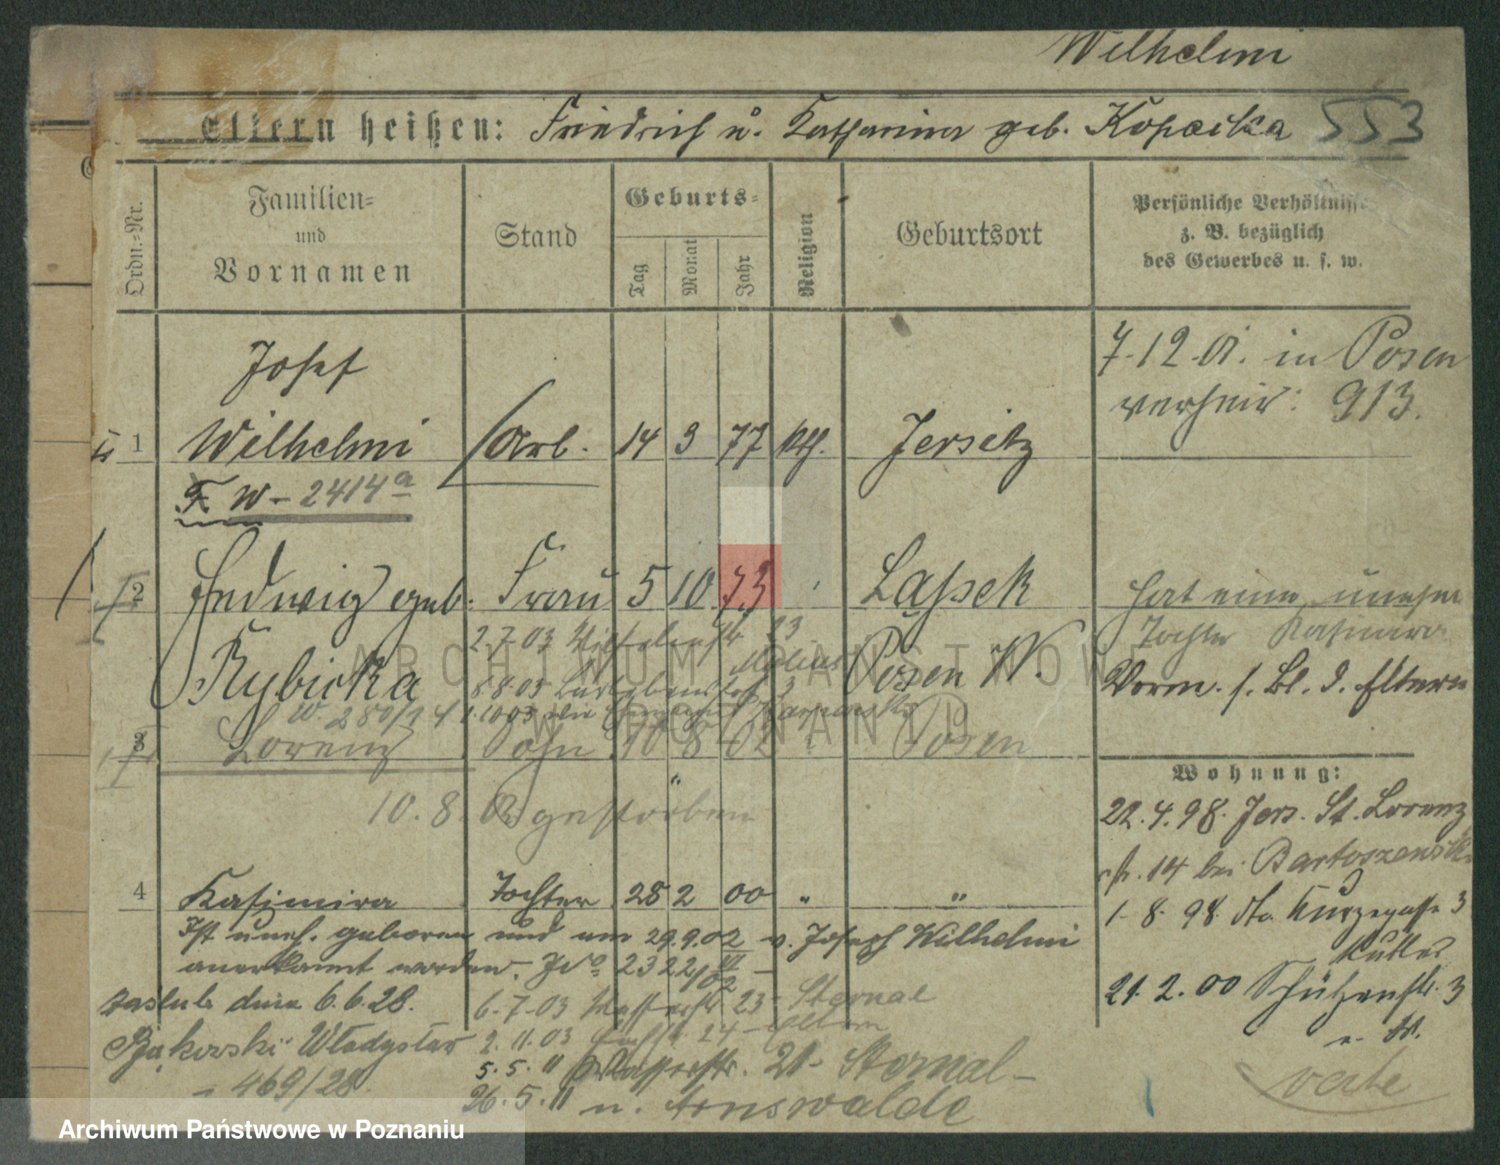 Wilhelmi
Eltern heißen: Friedrich u. Katharina geb. Kopacka 553
Ordn.-Nr.
Familien-
und
Vornamen
Stand
Geburts-
Tag
Monat
Jahr
Religion
Geburtsort
Persönliche Verhältnisse
z. B. bezüglich
des Gewerbes u. s. w.
7.12.01. in Posen
verheir: 913.
Josef
1 Wilhelmi Arb. 14 3 77 kth. Jersitz
W - 2414a
2 Hedwig geb. Frau 5 10 73 Lassek
hat eine unehel
Tochter Kasimira
2.7.03 23
Rybicka Posen W.
Vorm. s. Bl. d. Eltern
8.8.03 3
W. 280/34 1.10.03
3 Lorenz Sohn 10 8 02 Posen
Wohnung:
10.8. 02 gestorben
22.4.98. Jers. St. Lorenz
str. 14 bei
4 Kasimira Tochter 28 2 00 " "
1.8.98. dto. Kurzegasse 3
Ist uneh. geboren und am 29.9.02 v. Joseph Wilhelmi
anerkannt worden. 23 22/02
21.2.00 Schützenstr. 3
zaślub. dnia 6.6.28.
6.7.03 23 - Sternal
Bąkowski Władysław 2.11.03 24 - Eltern
5.5.11 Wasserstr. 21 - Sternal -
- 469/28.
26.5.11 n. Arnswalde
verte
ARCHIWUM PAŃSTWOWE
W POZNANIU
Archiwum Państwowe w Poznaniu